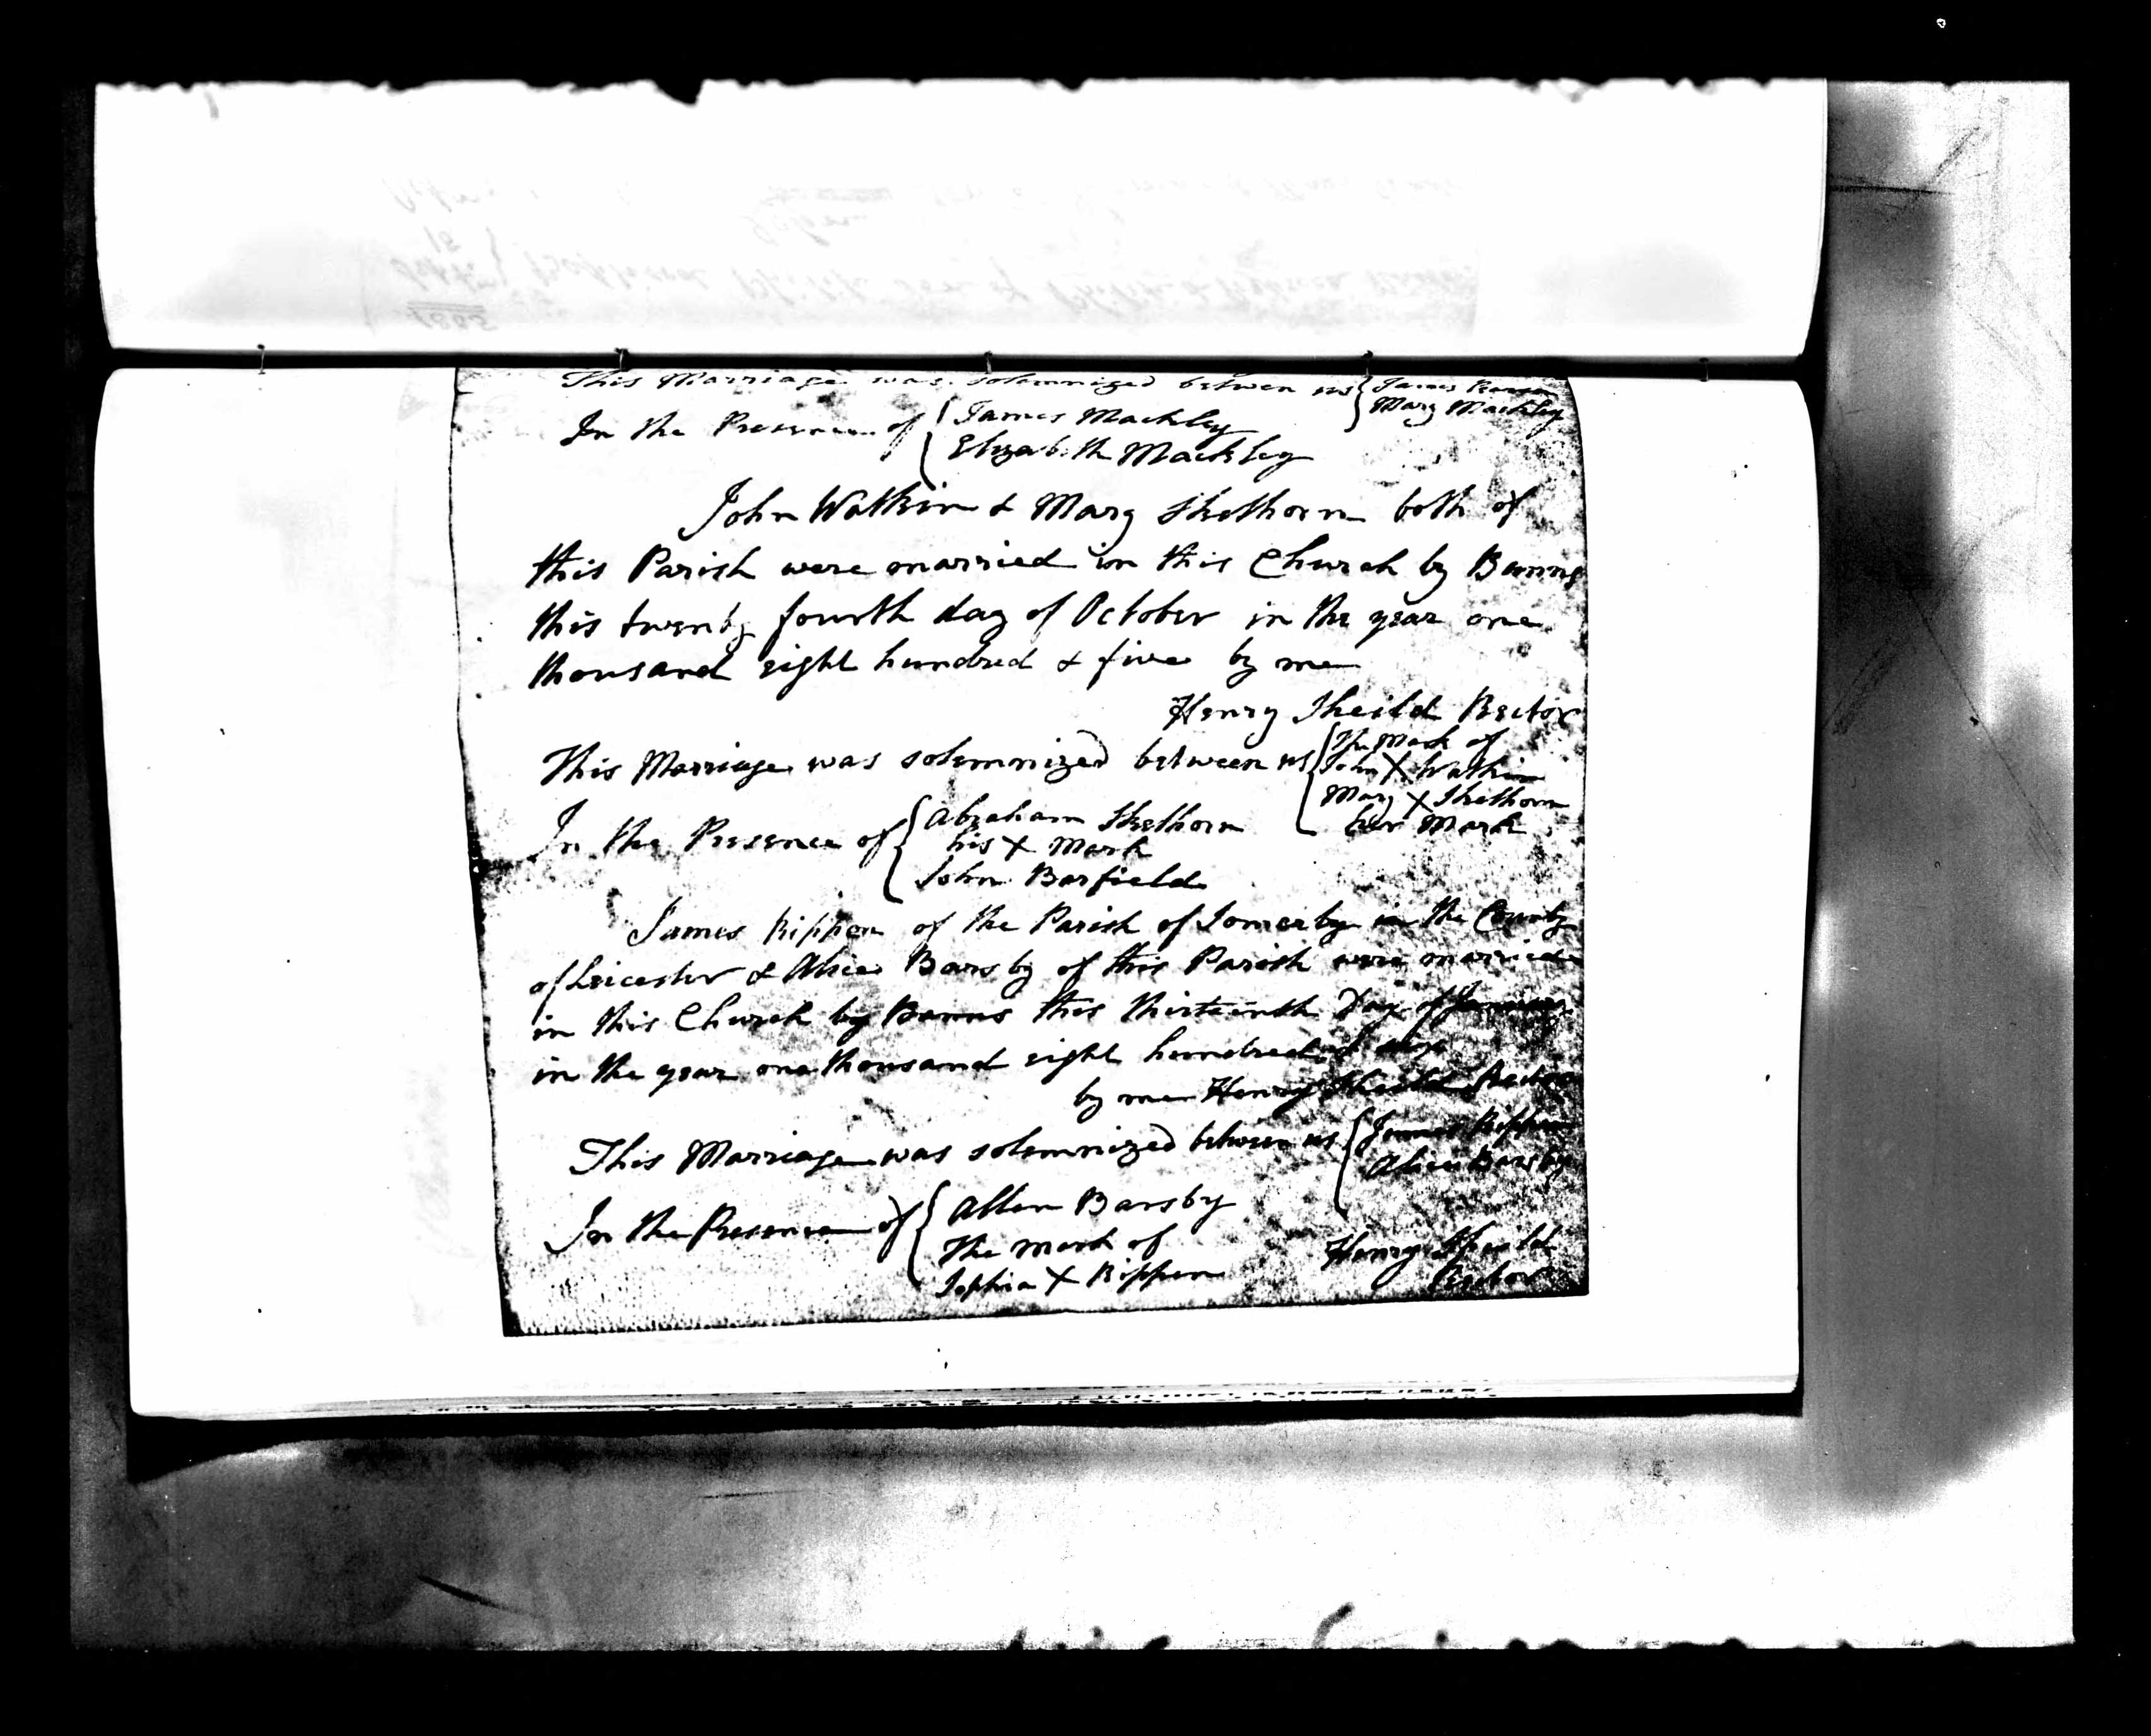 This Marriage was solemnized between us { James
Mary Mackley
In the Presence of { James Mackley
Elizabeth Mackley
John Watkin & Mary Skethorn both of
this Parish were married in this Church by Banns
this twenty fourth day of October in the year one
thousand eight hundred & five by me
Henry Sheild Rector
This Marriage was solemnized between us { The Mark of
John X Watkin
Mary X Skethorn
her Mark
In the Presence of { Abraham Skethorn
his X Mark
John Barfield
James Rippon of the Parish of Somerby in the County
of Leicester & Alice Barsby of this Parish were married
in this Church by Banns this thirteenth Day of January
in the year one thousand eight hundred & six
by me Henry Sheild Rector
This Marriage was solemnized between us { James Rippon
Alice Barsby
In the Presence of { Allen Barsby
The mark of
Sophia X Rippon
Henry Sheild
Rector